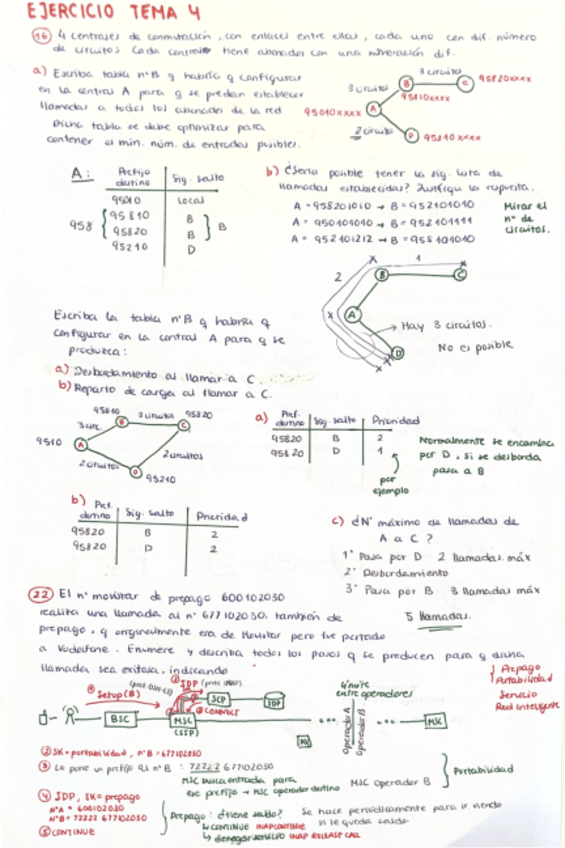 EJERCICIO TEMA 4
16 4 centrales de conmutación, con enlaces entre ellas, cada uno con dif. número
de circuitos. Cada central tiene abonados con una numeración dif.
a) Escriba tabla nºB q habría q configurar
en la central A para q se puedan establecer
llamadas a todos los abonados de la red.
Dicha tabla se debe optimizar para
contener el min. núm. de entradas posibles.
3 circuitos
3 circuitos
B
C
95820xxxx
95810xxxx
A
95010xxxx
2 circuitos
D
95210xxxx
A:
Prefijo destino
Sig. salto
95010 Local
958 { 95810 B } B
95820 B
95210 D
b) ¿Sería posible tener la sig. lista de
llamadas establecidas? Justifiqu la rspuesta.
A = 958201010 → B = 952101010
A = 950101010 → B = 952101111
A = 952101212 → B = 958101010
Mirar el
nº de
circuitos.
1
2
B
C
A
D
→ Hay 3 circuitos.
No es posible
Escriba la tabla nºB q habría q
configurar en la central A para q se
produzca:
a) Desbordamiento al llamar a C.
b) Reparto de cargas al llamar a C.
95810
3 circuitos
95820
3 circ.
B
C
9510
A
2 circuitos
2 circuitos
D
95210
a)
Pref. destino
Sig. salto
Prioridad
95820 B 2
95820 D 1
por
ejemplo
Normalmente se encamina
por D, si se desborda
pasa a B
b)
Pref. destino
Sig. salto
Prioridad
95820 B 2
95820 D 2
c) ¿Nº máximo de llamadas de
A a C?
1º Pasa por D 2 llamadas máx
2º Desbordamiento
3º Pasa por B 3 llamadas máx
5 llamadas.
22 El nº movistar de prepago 600102030
realiza una llamada al nº 677102030, también de
prepago, q originalmente era de Movistar pero fue portado
a Vodafone. Enumere y describa todos los pasos q se producen para q dicha
llamada sea exitosa, indicando
Prepago
Portabilidad
Servicio
Red Inteligente
Setup(B)
IDP
CONNECT
BSC
MSC
(SSP)
SCP
SDP
límite
entre operadores
operador A
operador B
MSC
② SK=portabilidad, nºB=677102030
③ Le pone un prefijo al nºB: 72222 677102030
MSC busca entrada para
ese prefijo → MSC operador destino
MSC operador B
Portabilidad
④ IDP, SK=prepago
NºA = 600102030
NºB = 72222 677102030
⑤ CONTINUE
Prepago: ¿tiene saldo?
Se hace periódicamente para ir viendo
si le queda saldo
↳ CONTINUE INAP CONTINUE
↳ denegar servicio INAP RELEASE CALL